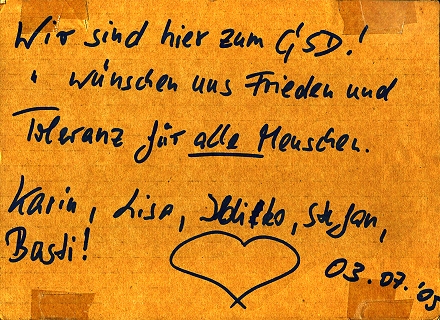 Wir sind hier zum CSD!
" wünschen uns Frieden und
Toleranz für alle Menschen.
Karin, Lisa, Ildikko, Stefan,
Basti!
03.07.'05